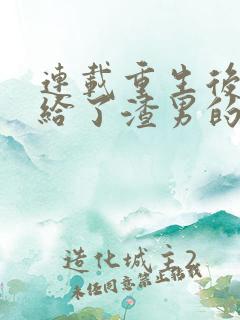 連載重生後
給了渣男的
造化城主2
未经同意禁止转载